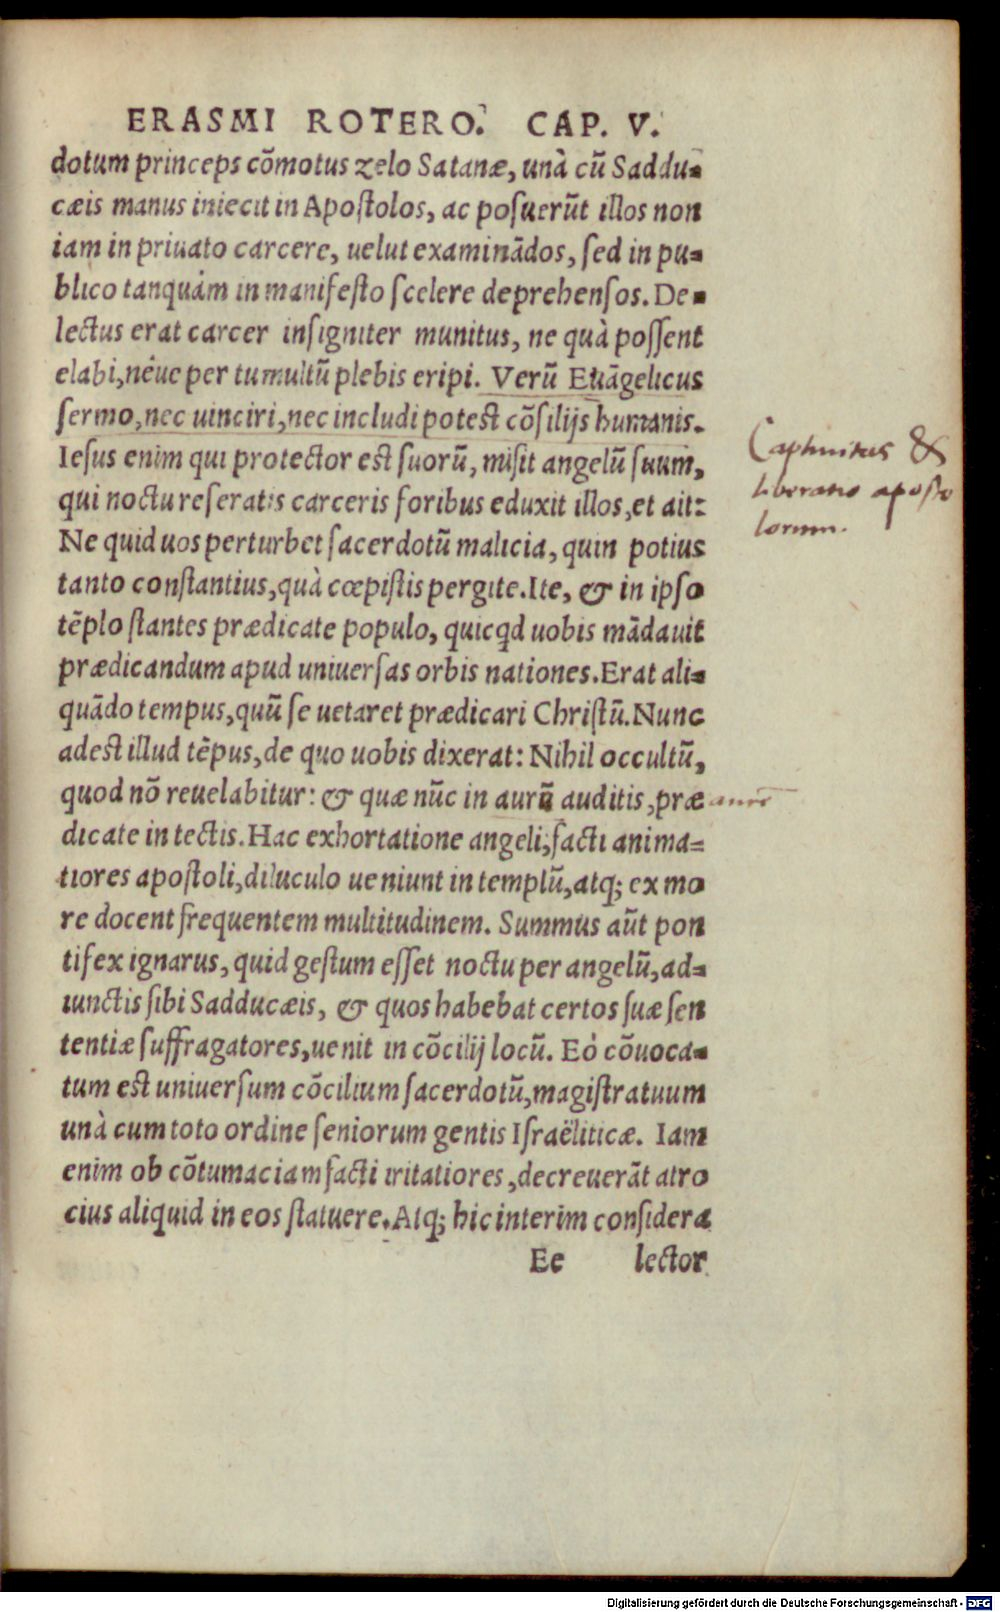 ERASMI ROTERO. CAP. V.
dotum princeps cõmotus zelo Satanæ, unà cũ Saddu-
cæis manus iniecit in Apostolos, ac posuerũt illos non
iam in priuato carcere, uelut examinãdos, sed in pu-
blico tanquàm in manifesto scelere deprehensos. De-
lectus erat carcer insigniter munitus, ne quà possent
elabi, néue per tumultũ plebis eripi. Verũ Euãgelicus
sermo, nec uinciri, nec includi potest cõsilijs humanis.
Iesus enim qui protector est suorũ, misit angelũ suum,
qui noctu reseratis carceris foribus eduxit illos, et ait:
Ne quid uos perturbet sacerdotũ malicia, quin potius
tanto constantius, quà cœpistis pergite. Ite, & in ipso
tẽplo stantes prædicate populo, quicqd uobis mãdauit
prædicandum apud uniuersas orbis nationes. Erat ali-
quãdo tempus, quũ se uetaret prædicari Christũ. Nunc
adest illud tẽpus, de quo uobis dixerat: Nihil occultũ,
quod nõ reuelabitur: & quæ nũc in aurũ auditis, præ
dicate in tectis. Hac exhortatione angeli, facti anima-
tiores apostoli, diluculo ueniunt in templũ, atq; ex mo
re docent frequentem multitudinem. Summus aũt pon
tifex ignarus, quid gestum esset noctu per angelũ, ad-
iunctis sibi Sadducæis, & quos habebat certos suæ sen
tentiæ suffragatores, uenit in cõcilij locũ. Eò cõuoca-
tum est uniuersum cõcilium sacerdotũ, magistratuum
unà cum toto ordine seniorum gentis Israëliticæ. Iam
enim ob cõtumaciam facti iritatiores, decreuerãt atro
cius aliquid in eos statuere. Atq; hic interim considera
Ee lector
Captiuitas &
liberatio aposto
lorum.
aure
Digitalisierung gefördert durch die Deutsche Forschungsgemeinschaft - DFG